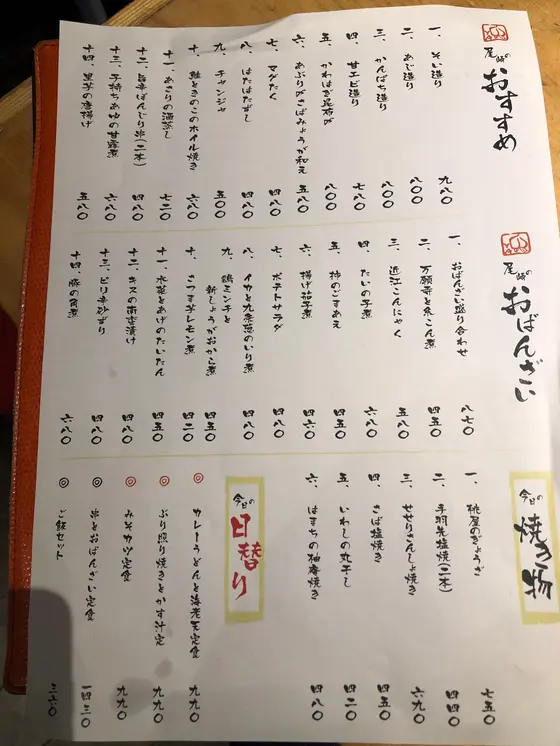 おすすめ
一、そい造り 九八〇
二、あじ造り 八〇〇
三、かんぱち造り 八〇〇
四、甘エビ造り 七八〇
五、かわはぎ昆布〆 八〇〇
六、あぶり〆さばみょうが和え 五八〇
七、マグたく 四八〇
八、はたはたずし 四八〇
九、チャンジャ 五〇〇
十、鮭ときのこのホイル焼き 六八〇
十一、あさりの酒蒸し 七二〇
十二、旨辛ぼんじり串(二本) 四八〇
十三、子持ちあゆの甘露煮 六八〇
十四、里芋の唐揚げ 五八〇
おばんざい
一、おばんざい盛り合わせ 八七〇
二、万願寺と糸こん煮 四五〇
三、近江こんにゃく 五八〇
四、たいの子煮 六八〇
五、柿のごまあえ 四五〇
六、揚げ茄子煮 四六〇
七、ポテトサラダ 四八〇
八、イカと九条葱のいり煮 四八〇
九、鶏ミンチと
新しょうがおから煮 四五〇
十、さつま芋レモン煮 四二〇
十一、水菜とあげのたいたん 四五〇
十二、キスの南蛮漬け 四八〇
十三、ピリ辛砂ずり 四八〇
十四、豚の角煮 六八〇
今日の焼き物
一、桃屋のぎょうざ 七五〇
二、手羽先塩焼(二本) 四四〇
三、せせりさんしょ焼き 六九〇
四、さば塩焼き 四五〇
五、いわしの丸干し 四二〇
六、はまちの柚庵焼き 四八〇
今日の日替り
◎ カレーうどんと海老天定食 九九〇
◎ ぶり照り焼きとかす汁定 九九〇
◎ みそカツ定食 九九〇
◎ 串とおばんざい定食 一四三〇
◎ ご飯セット 三六〇